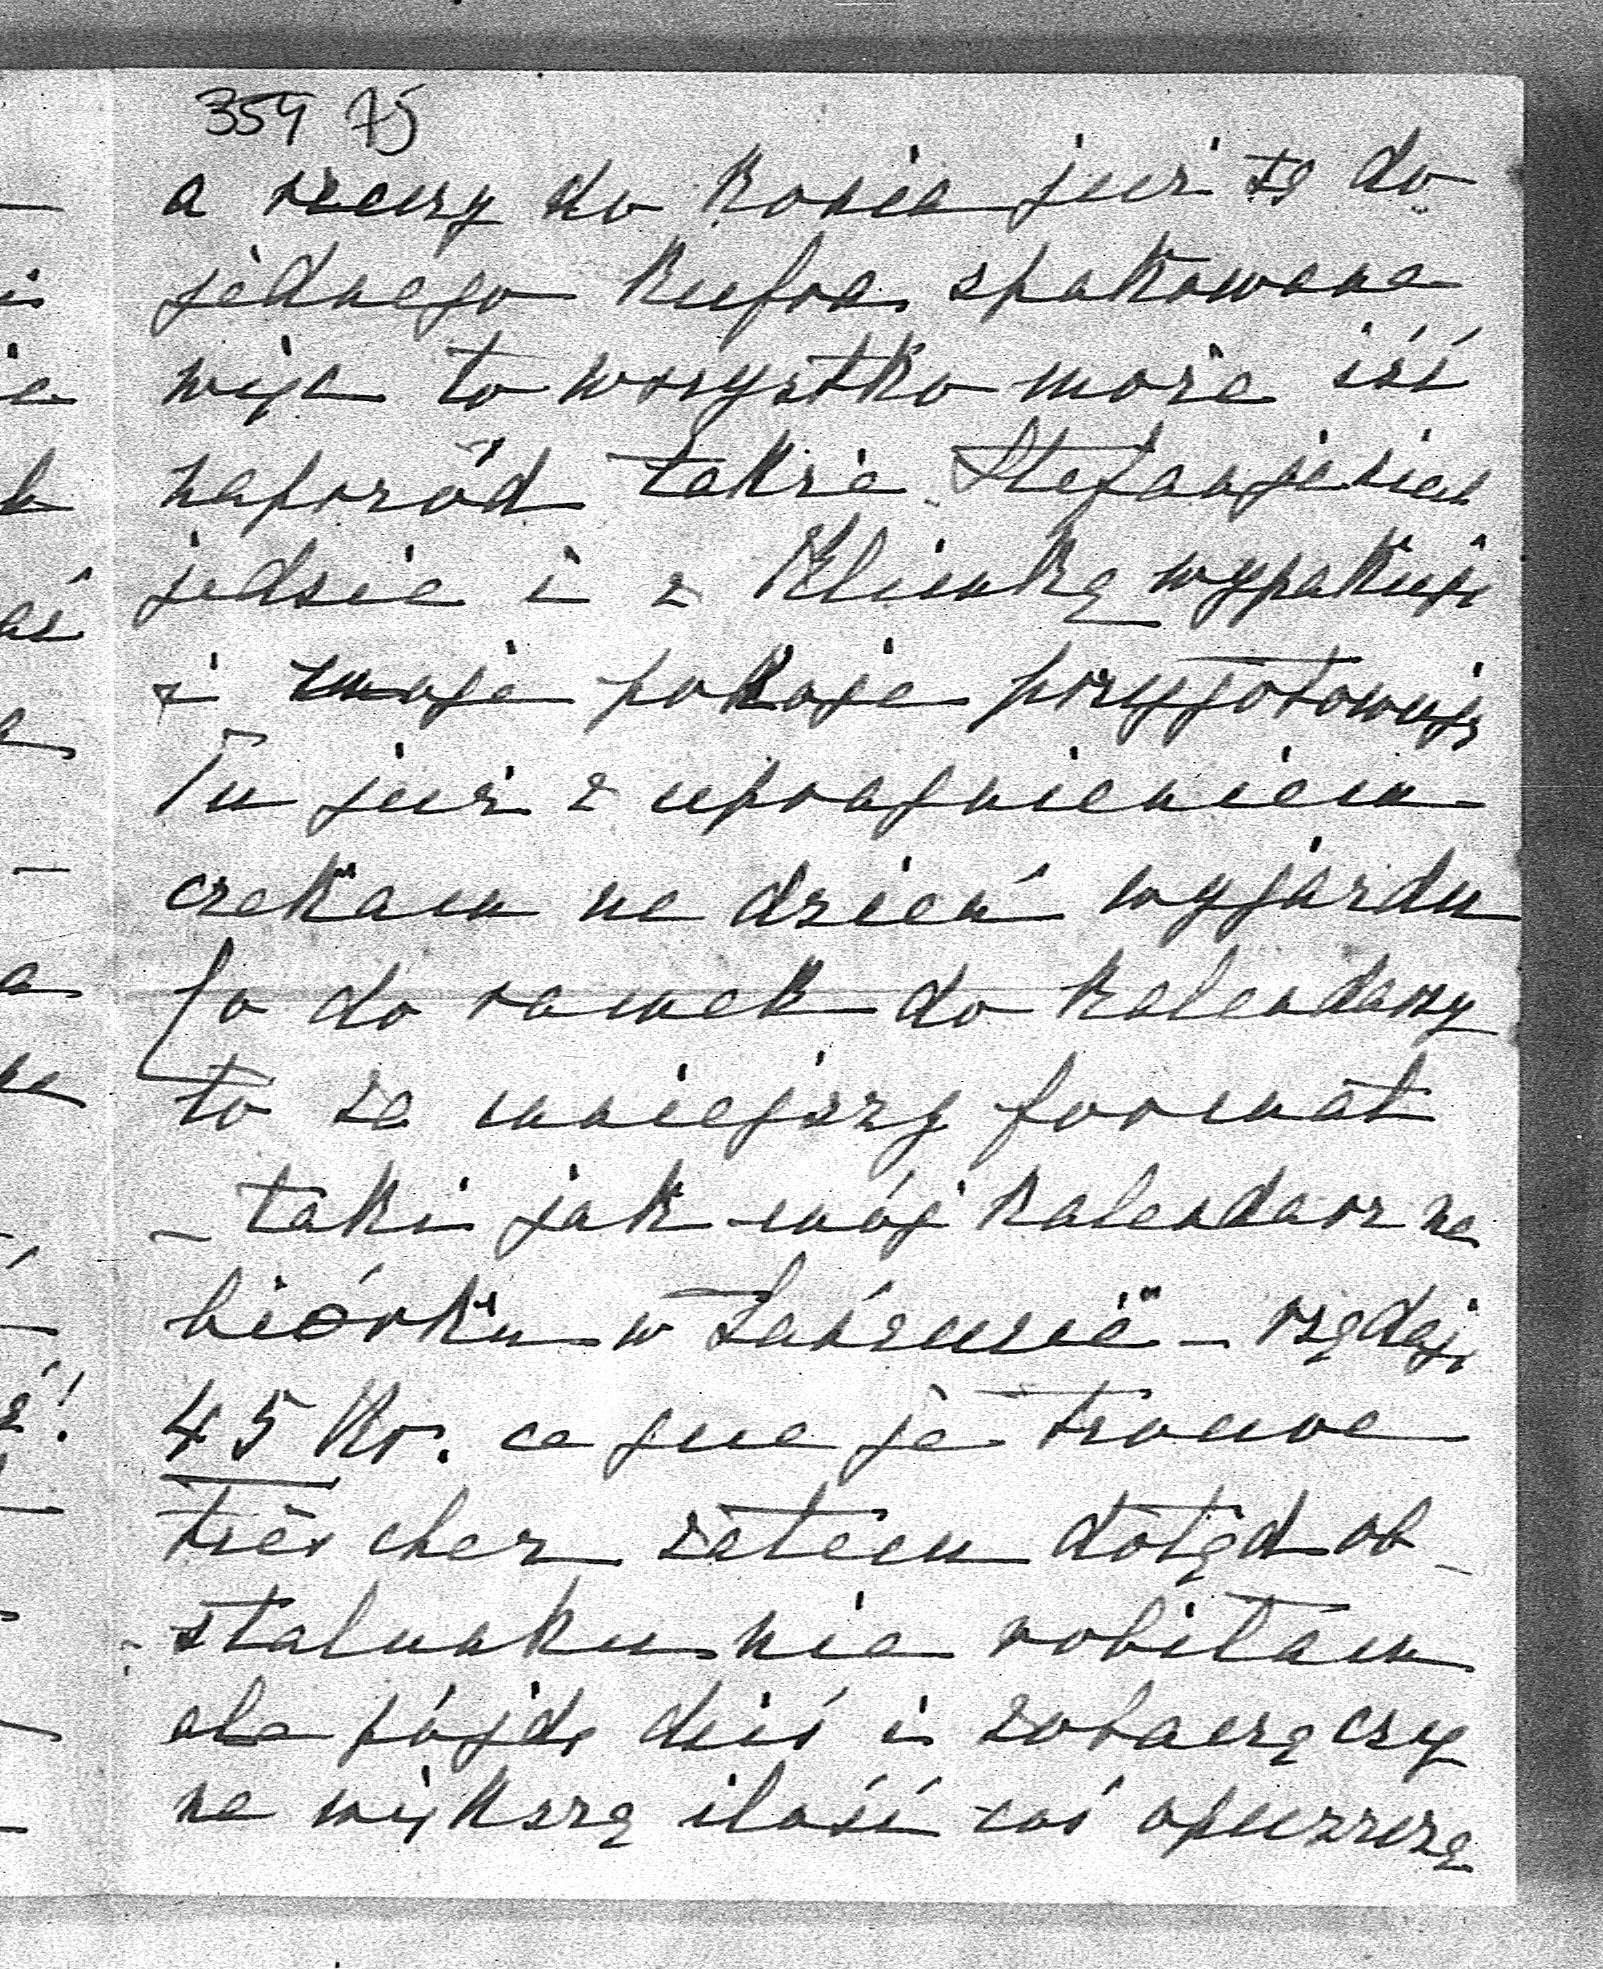 354 75
a rzeczy do konia już są do
jednego kufra spakowane
więc to wszystko może iść
naprzód także Stefan
jedzie i z Klimką wypakują
i moje pokoje przygotowują
Tu już z upragnieniem
czekam na dzień wyjazdu
Co do ramek do kalendarzy
to za mniejszy format
– taki jak mój kalendarz na
biórku w Łańcucie – rządają
45 Kr. ce que je trouve
très cher zatem dotąd ob-
stalunku nie robiłam
ale pójdę dziś i zobaczę czy
na większą ilość coś opuszczą